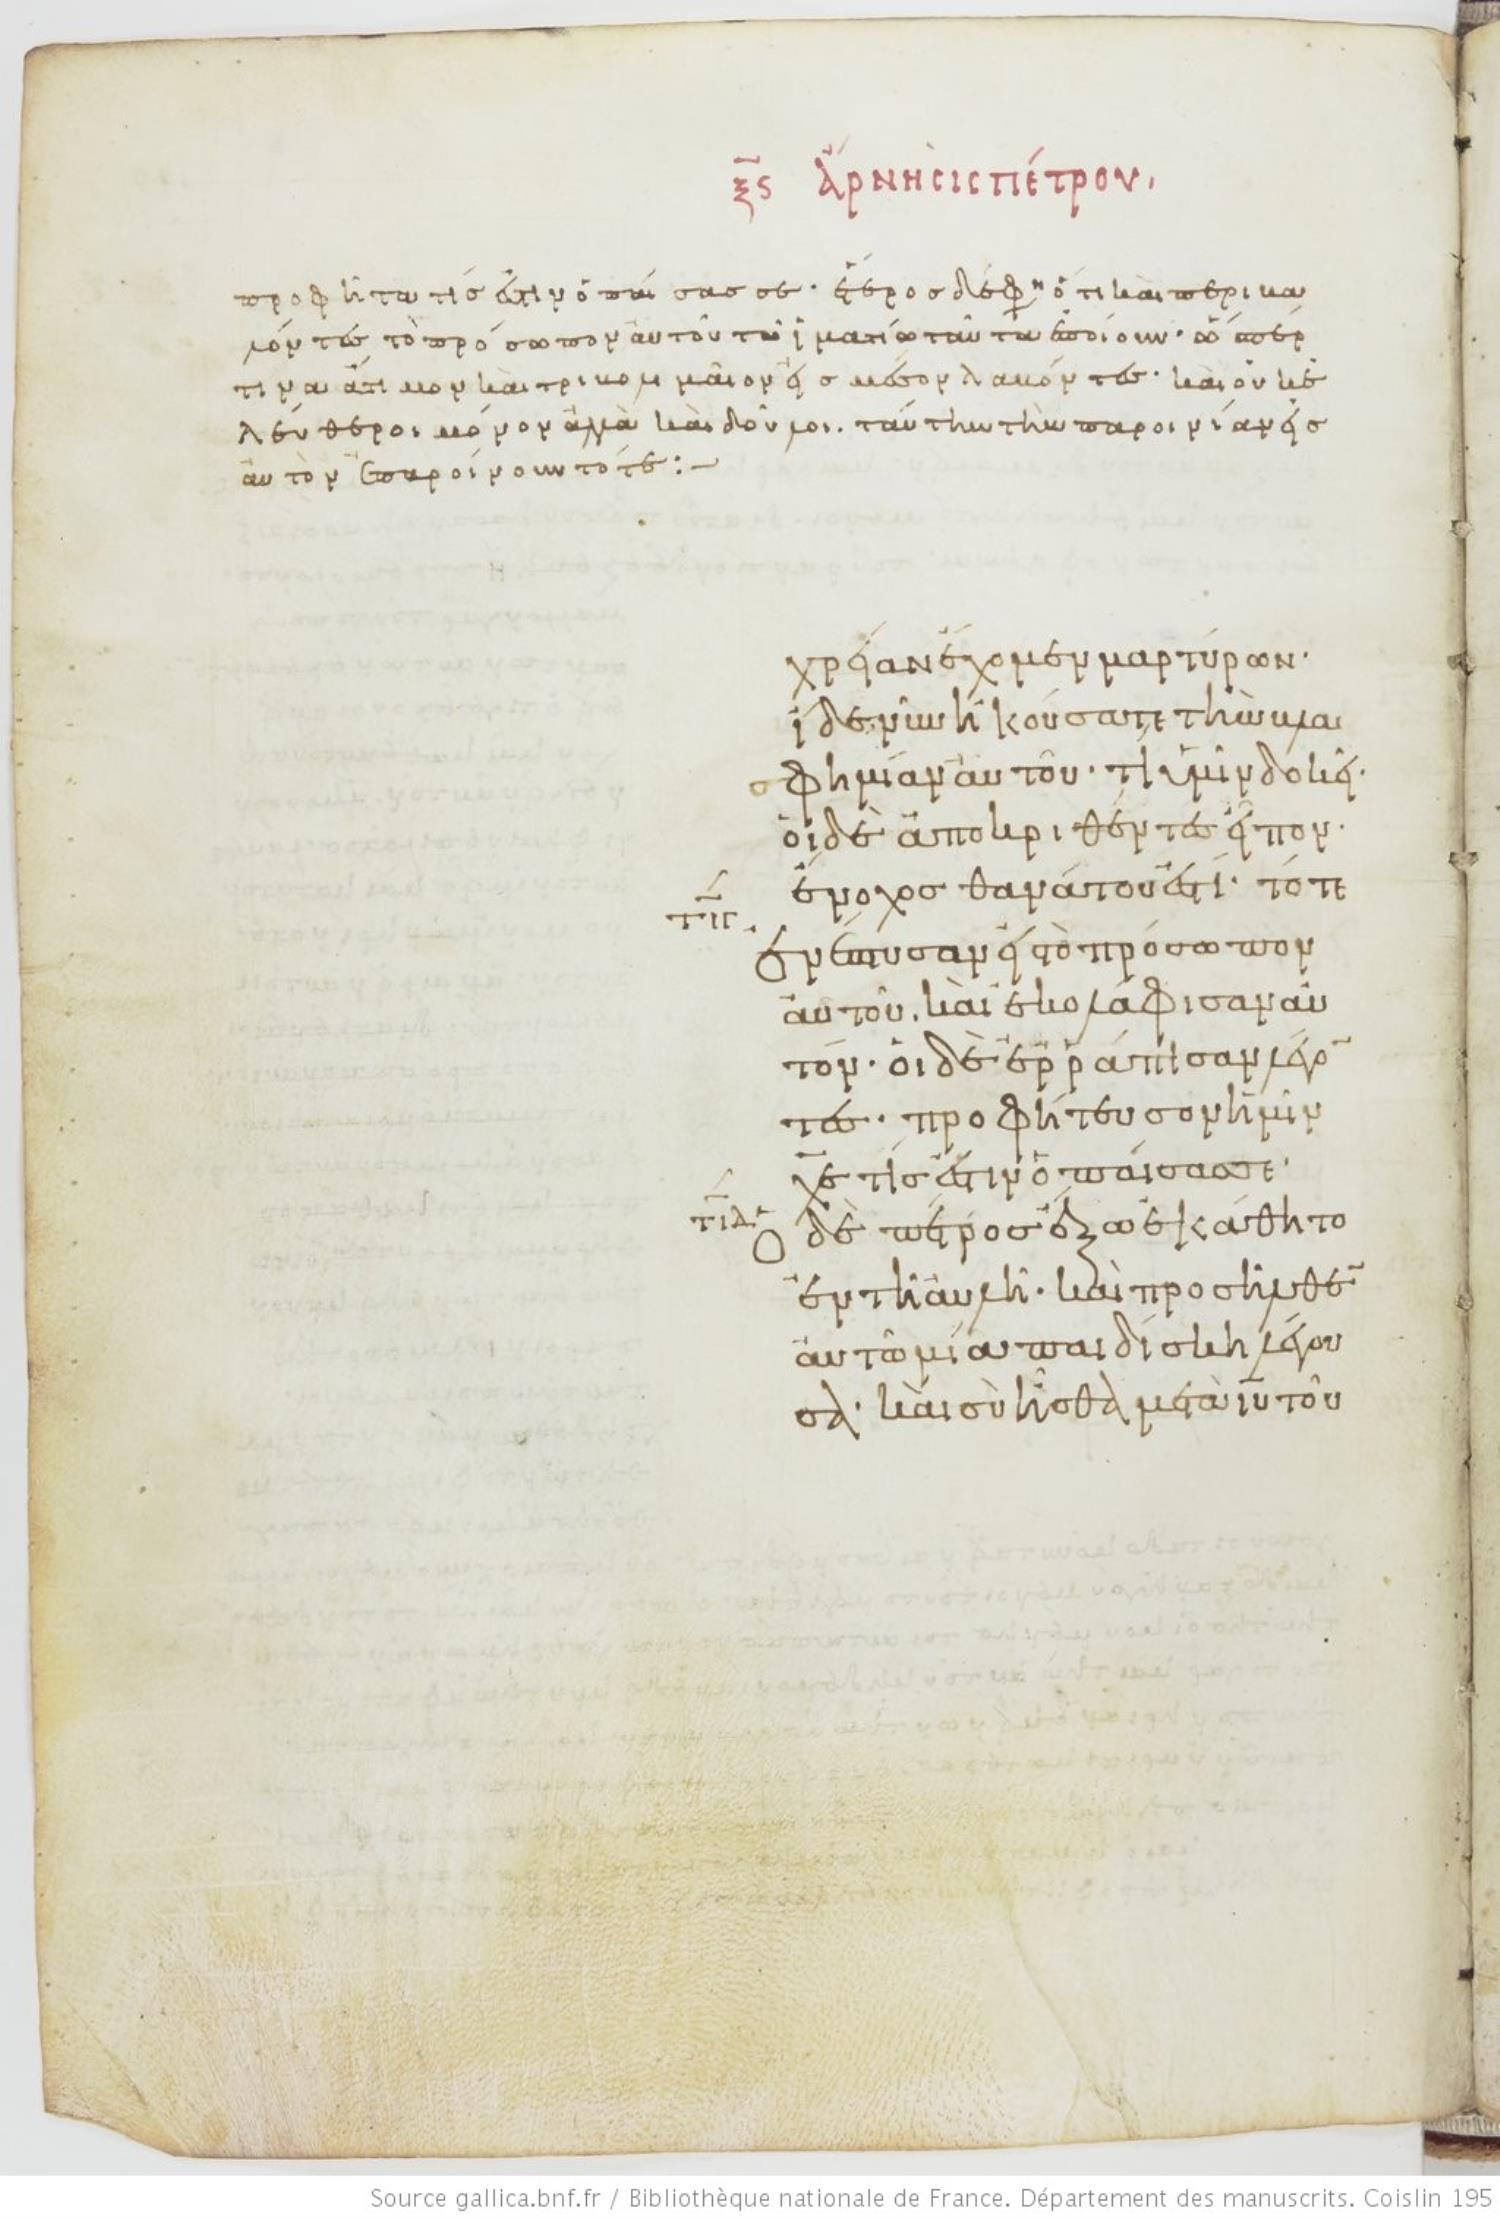 ξς ἄρνησις πέτρου.
προφῆτα τίς ἐστιν ὁ παίσας σε· ἕτερος δέ φη ὅτι καὶ περικα
λύπτοντες τὸ πρόσωπον αὐτοῦ τῷ ἱματίῳ ταῦτα ἐποίουν·
τινα ἄτιμον καὶ εἰς μέσον λαβόντες· καὶ οὐκ ἐ
λεύθεροι μόνον ἀλλὰ καὶ δοῦλοι. ταύτην τὴν παροινίαν εἰς
αὐτὸν ἐπαροίνουν τότε:–
χρείαν ἔχομεν μαρτύρων·
ἴδε νῦν ἠκούσατε τὴν βλα
σφημίαν αὐτοῦ· τί ὑμῖν δοκεῖ·
οἱ δὲ ἀποκριθέντες εἶπον·
ἔνοχος θανάτου ἐστί· τότε
τιγ
ἐνέπτυσαν εἰς τὸ πρόσωπον
αὐτοῦ. καὶ ἐκολάφισαν αὐ
τόν· οἱ δὲ ἐρράπισαν λέγον
τες· προφήτευσον ἡμῖν
χε τίς ἐστιν ὁ παίσας σε·
τιδ
Ὁ δὲ πέτρος ἔξω ἐκάθητο
ἐν τῇ αὐλῇ· καὶ προσῆλθεν
αὐτῷ μία παιδίσκη λέγου
σα· καὶ σὺ ἦσθα μετὰ ιυ τοῦ
Source gallica.bnf.fr / Bibliothèque nationale de France. Département des manuscrits. Coislin 195